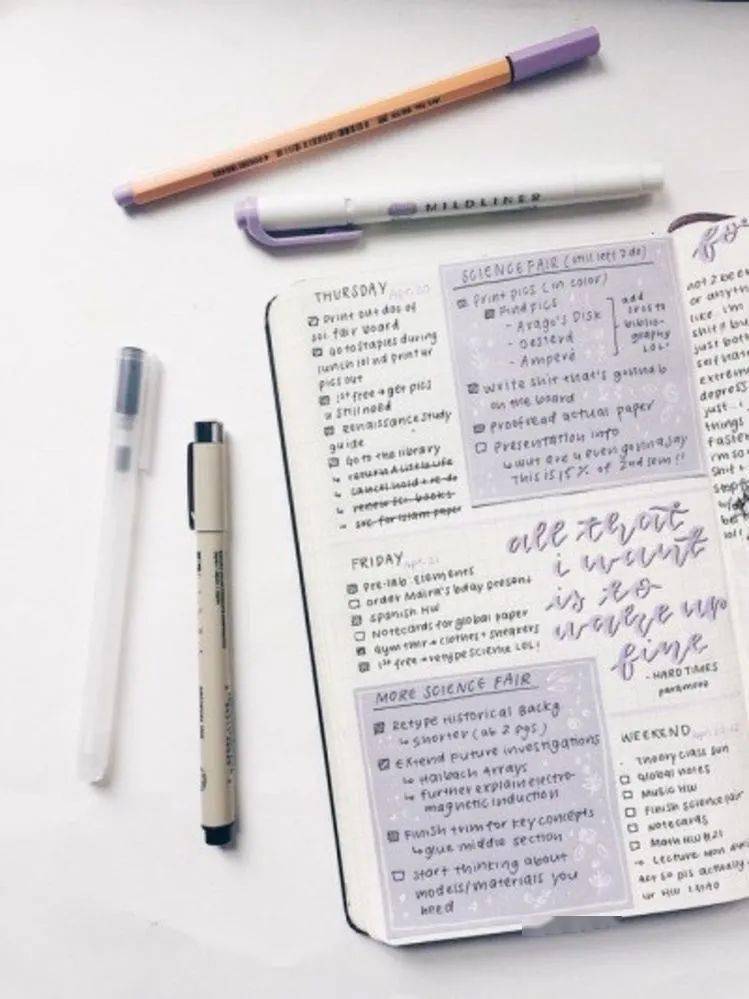 MILDLINER
THURSDAY Apr. 20
Print out doc of
sci. fair board
Go to staples during
lunch 101 nd printer
pics out
1st free → get pics
u still need
Renaissance study
guide
Go to the library
↳ return A Little Life
↳ cancel hold + re-do
↳ renew for. books
↳ soc. for Islam paper
SCIENCE FAIR (still left 2 do)
Print pics (in color)
Find pics
- Arago's Disk
- Oesterd
- Ampere
add
srcs to
biblio-
graphy
LOL!
Write shit that's gonna b
on the board
Proofread actual paper
Presentation info
↳ wut are u even gonna say
This is 15% of 2nd sem!!
FRIDAY Apr. 21
Pre-lab Elements
Order Maira's bday present
Spanish HW
Notecards for global paper
Gym tmr → clothes + sneakers
1st free → retype science LOL!
all that
i want
is to
wake up
fine
- HARD TIMES
paramore
MORE SCIENCE FAIR
Retype Historical Backg
↳ shorter (ab 2 pgs)
Extend Future investigations
↳ Halbach Arrays
↳ further explain electro-
magnetic induction
Finish trim for key concepts
↳ glue middle section
Start thinking about
models/materials you
need
WEEKEND
- Theory class sun
Global notes
Music HW
Finish science fair
Notecards
Math HW #21
→ Lecture
not 2 be
or anyth
like i'm
shit! bu
just bot
self hat
extrem
depress
just
things
faster